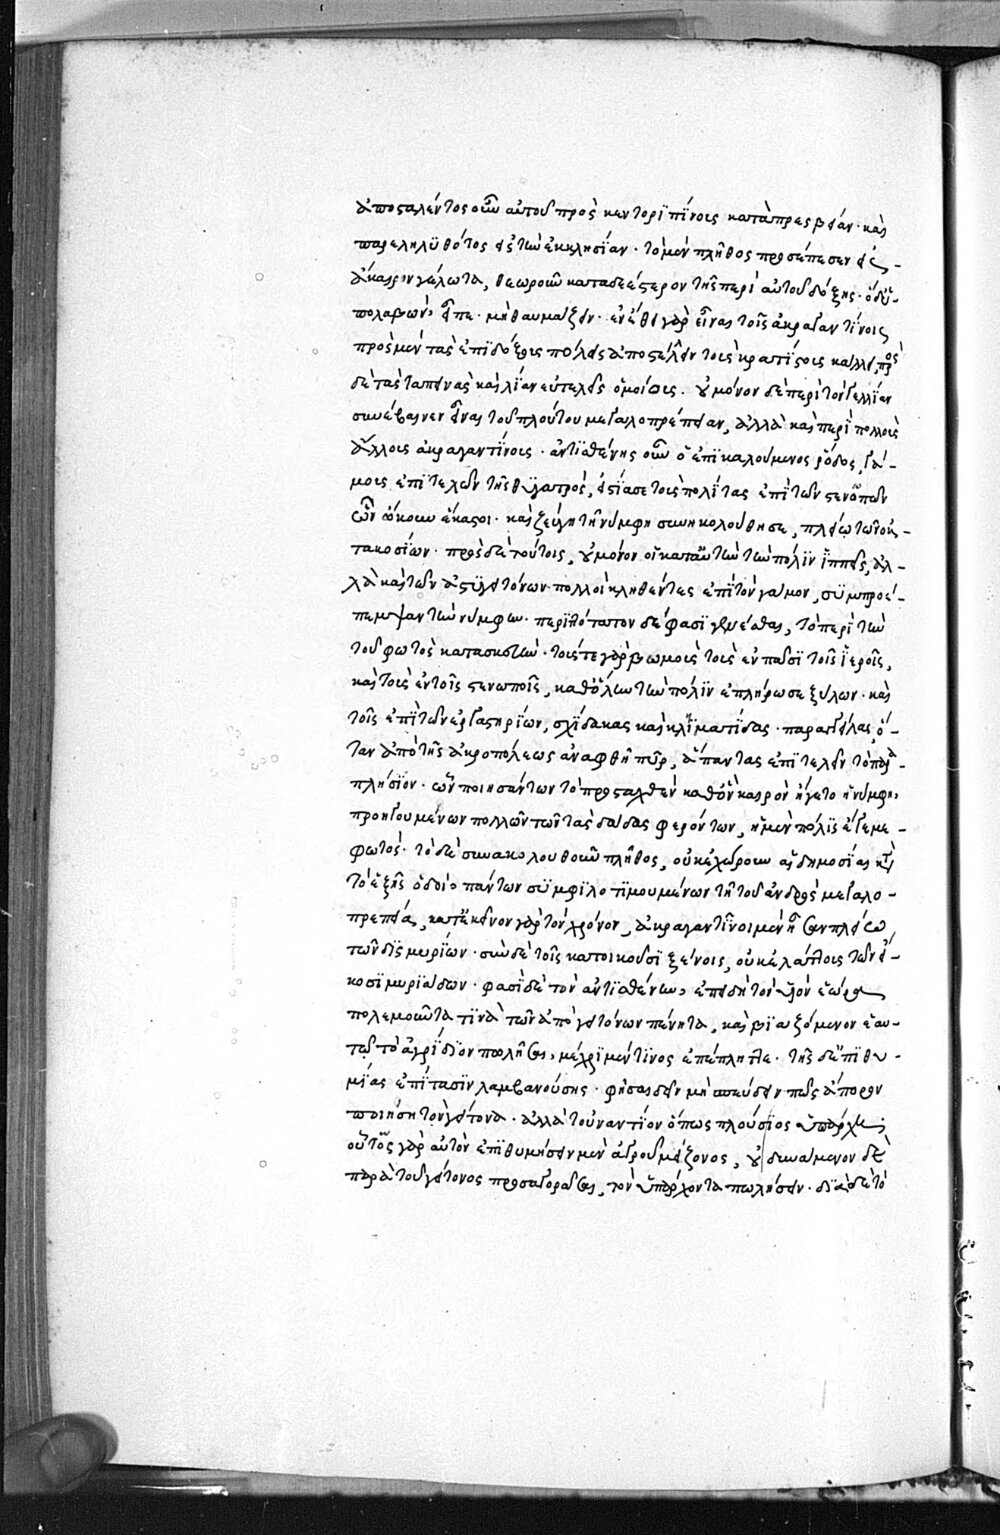 ἀποσταλέντος οὖν αὐτοῦ πρὸς κεντοριπίνους κατὰ πρεσβείαν· καὶ
παρεληλυθότος εἰς τὴν ἐκκλησίαν· τὸ μὲν πλῆθος προσέπεσεν εἰς
ἄκαιρον γέλωτα, θεωροῦν καταδεέστερον τῆς περὶ αὐτοῦ δόξης· ὁ δ' ὑ-
πολαβὼν, εἶπε· μὴ θαυμάζειν· ἐν ἔθει γὰρ εἶναι τοῖς ἀκραγαντίνοις
πρὸς μὲν τὰς ἐπιδόξους πόλεις ἀποστέλλειν τοὺς κρατίστους κάλλει, πρὸς
δὲ τὰς ταπεινὰς καὶ λίαν εὐτελεῖς ὁμοίους. οὐ μόνον δὲ περὶ τὸν γελλίαν
συνέβαινεν εἶναι τοῦ πλούτου μεγαλοπρέπειαν, ἀλλὰ καὶ περὶ πολλοὺς
ἄλλους ἀκραγαντίνους· ἀντισθένης οὖν ὁ ἐπικαλούμενος ῥόδος, γά-
μους ἐπιτελῶν τῆς θυγατρός, εἱστίασε τοὺς πολίτας ἐπὶ τῶν στενωπῶν
ὧν ᾤκουν ἕκαστοι· καὶ ζεύγη τῇ νύμφῃ συνηκολούθησε, πλείω τῶν ὀκ-
τακοσίων· πρὸς δὲ τούτοις, οὐ μόνον οἱ κατ' αὐτὴν τὴν πόλιν ἱππεῖς, ἀλ-
λὰ καὶ τῶν ἀστυγειτόνων πολλοὶ κληθέντες ἐπὶ τὸν γάμον, συμπροέ-
πεμψαν τὴν νύμφην· περιττότατον δέ φασι γενέσθαι, τὸ περὶ τὴν
τοῦ φωτὸς κατασκευήν· τούς τε γὰρ βωμοὺς τοὺς ἐν πᾶσι τοῖς ἱεροῖς,
καὶ τοὺς ἐν τοῖς στενωποῖς, καθ' ὅλην τὴν πόλιν ἐπλήρωσε ξύλων· καὶ
τοῖς ἐπὶ τῶν ἐργαστηρίων, σχίδακας καὶ κλιματίδας· παραγγείλας, ὅ-
ταν ἀπὸ τῆς ἀκροπόλεως ἀναφθῇ πῦρ, ἅπαντας ἐπιτελεῖν τὸ παρα-
πλήσιον· ὧν ποιησάντων τὸ προσταχθὲν καθ' ὃν καιρὸν ἤγετο ἡ νύμφη,
προηγουμένων πολλῶν τῶν τὰς δᾷδας φερόντων, ἡ μὲν πόλις ἔγεμε
φωτός· τὸ δὲ συνακολουθοῦν πλῆθος, οὐκ ἐχώρουν αἱ δημοσίαι κατὰ
τὸ ἑξῆς ὁδοί· πάντων συμφιλοτιμουμένων τῇ τοῦ ἀνδρὸς μεγαλο-
πρεπείᾳ, κατ' ἐκεῖνον γὰρ τὸν χρόνον, ἀκραγαντῖνοι μὲν ἦσαν πλείω
τῶν δισμυρίων· σὺν δὲ τοῖς κατοικοῦσι ξένοις, οὐκ ἐλάττους τῶν εἴ-
κοσι μυριάδων· φασὶ δὲ τὸν ἀντισθένην, ἐπειδὴ τὸν υἱὸν ἑώρα
πολεμοῦντα τινὰ τῶν ἀπὸ γειτόνων πένητα, καὶ βιαζόμενον ἑαυ-
τῷ τὸ ἀγρίδιον πωλῆσαι, μέχρι μέν τινος ἐπέπληττε· τῆς δ' ἐπιθυ-
μίας ἐπίτασιν λαμβανούσης· φῆσαι δεῖν μὴ σπεύδειν πῶς ἄπορον
ποιήσῃ τὸν γείτονα· ἀλλὰ τοὐναντίον ὅπως πλούσιος ὑπάρχῃ;
οὕτως γὰρ αὐτὸν ἐπιθυμήσειν μὲν ἀγροῦ μείζονος, οὐ δυνάμενον δὲ
παρὰ τοῦ γείτονος προσαγοράσαι, τὸν ὑπάρχοντα πωλήσειν· διὰ δὲ τὸ